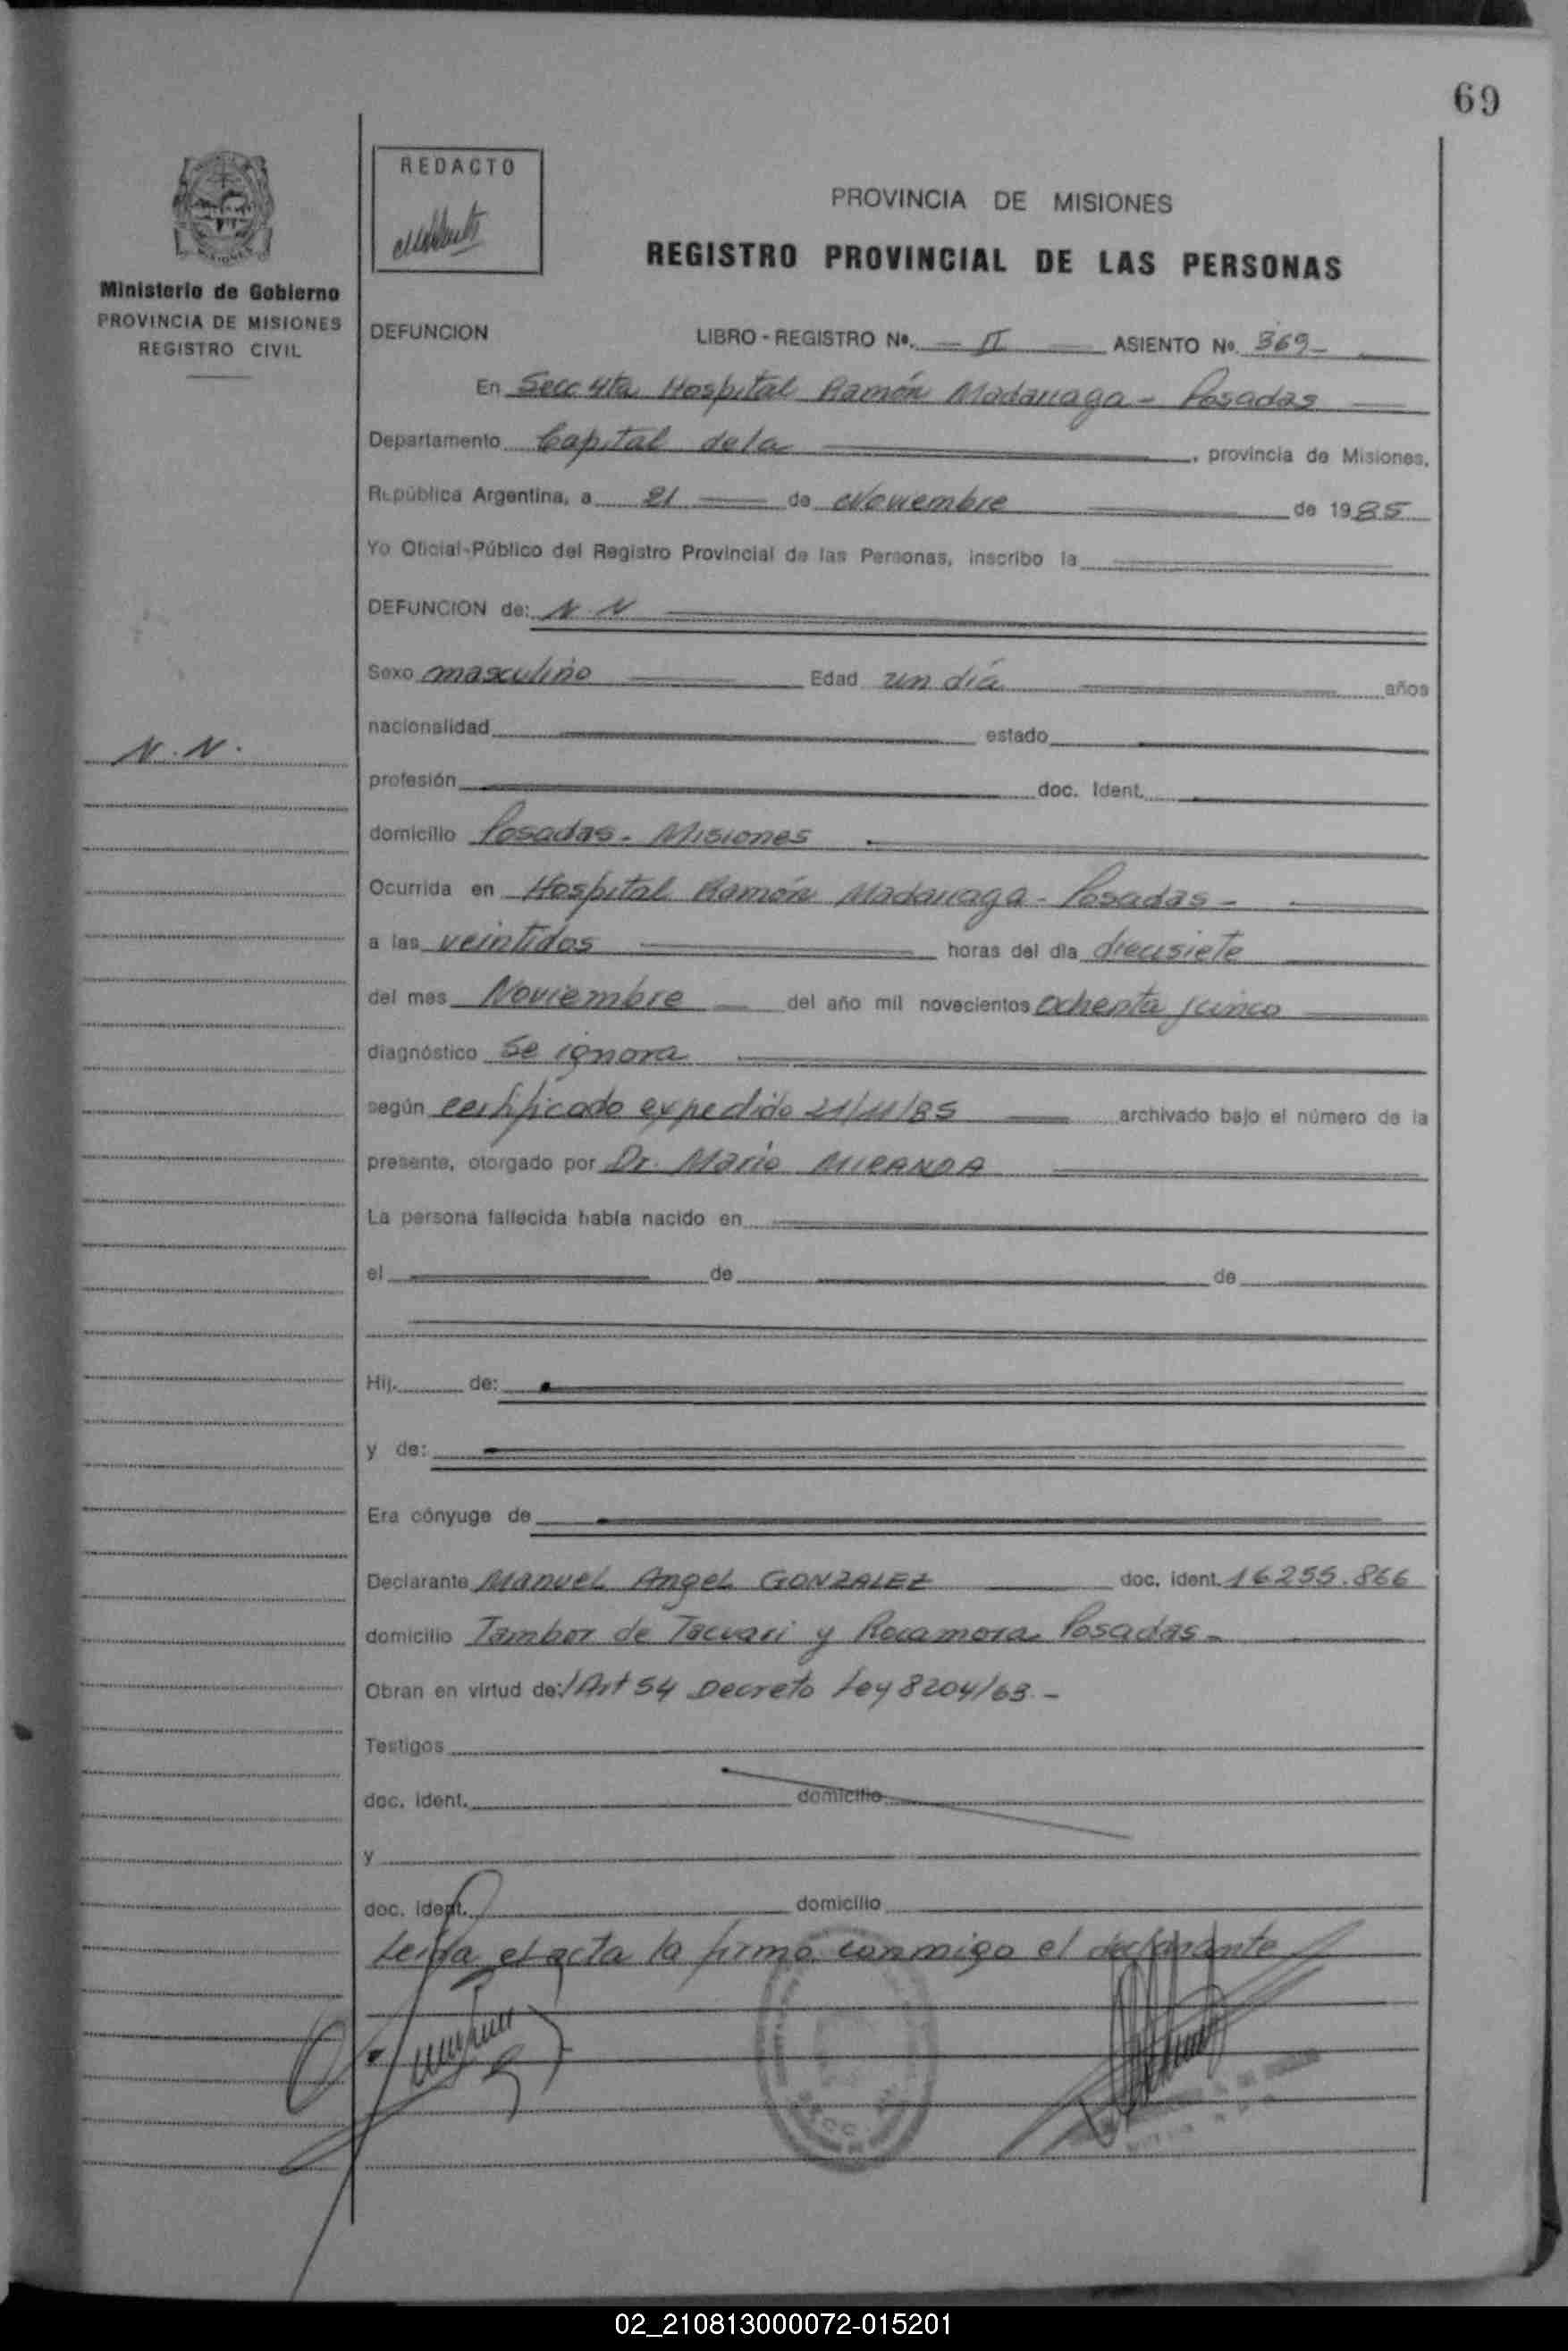 69
REDACTO
MISIONES
Ministerio de Gobierno
PROVINCIA DE MISIONES
REGISTRO CIVIL
PROVINCIA DE MISIONES
REGISTRO PROVINCIAL DE LAS PERSONAS
DEFUNCION LIBRO - REGISTRO Nº. II ASIENTO Nº. 369
En Secc 4ta Hospital Ramón Madariaga - Posadas
Departamento Capital de la , provincia de Misiones,
República Argentina, a 21 de Noviembre de 1985
Yo Oficial-Público del Registro Provincial de las Personas, inscribo la
DEFUNCION de: N. N
Sexo masculino Edad un día años
nacionalidad estado
N. N.
profesión doc. Ident.
domicilio Posadas - Misiones
Ocurrida en Hospital Ramón Madariaga - Posadas -
a las veintidos horas del día diecisiete
del mes Noviembre del año mil novecientos ochenta y cinco
diagnóstico Se ignora
según certificado expedido 21/11/85 archivado bajo el número de la
presente, otorgado por Dr. Mario MIRANDA
La persona fallecida había nacido en
el de de
Hij. de:
y de:
Era cónyuge de
Declarante Manuel Angel GONZALEZ doc. ident. 16.255.866
domicilio Tambor de Tacuari y Rocamora Posadas -
Obran en virtud de: Art 54 Decreto Ley 8204/63. -
Testigos
doc. ident. domicilio
y
doc. ident. domicilio
Leida el acta la firma conmigo el declarante
SECC
02_210813000072-015201